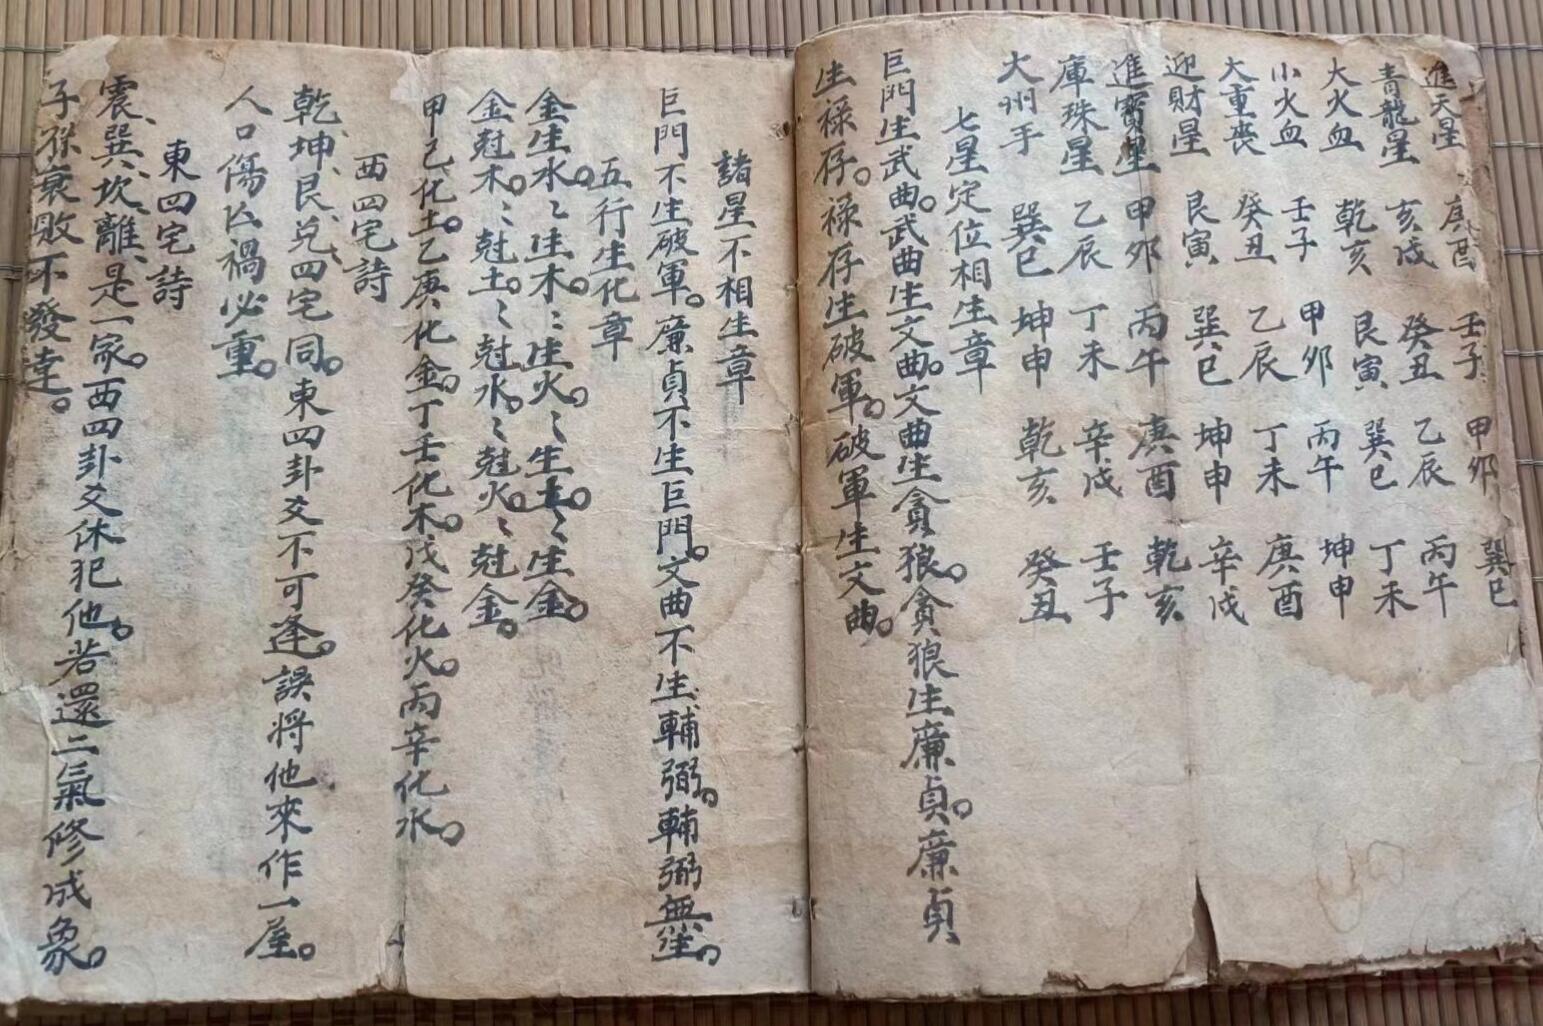 進天星 庚酉 壬子 甲夘 巽巳
青龍星 亥戌 癸丑 乙辰 丙午
大火血 乾亥 艮寅 巽巳 丁未
小火血 壬子 甲夘 丙午 坤申
大重喪 癸丑 乙辰 丁未 庚酉
迎財星 艮寅 巽巳 坤申 辛戌
進寳星 甲夘 丙午 庚酉 乾亥
庫珠星 乙辰 丁未 辛戌 壬子
大州手 巽巳 坤申 乾亥 癸丑
七星定位相生章
巨門生武曲。武曲生文曲。文曲生貪狼。貪狼生廉貞。廉貞
生禄存。禄存生破軍。破軍生文曲。
諸星不相生章
巨門不生破軍。廉貞不生巨門。文曲不生輔弼。輔弼無生。
五行生化章
金生水。〻生木。〻生火。〻生土。〻生金。
金尅木。〻尅土。〻尅水。〻尅火。〻尅金。
甲己化土。乙庚化金。丁壬化木。戊癸化火。丙辛化水。
西四宅詩
乾、坤、艮、兌、四宅同。東四卦爻不可逢。誤將他來作一屋。
人口傷亾禍必重。
東四宅詩
震、巽、坎、離、是一家。西四卦爻休犯他。若還二氣修成象。
子孫衰敗不發達。